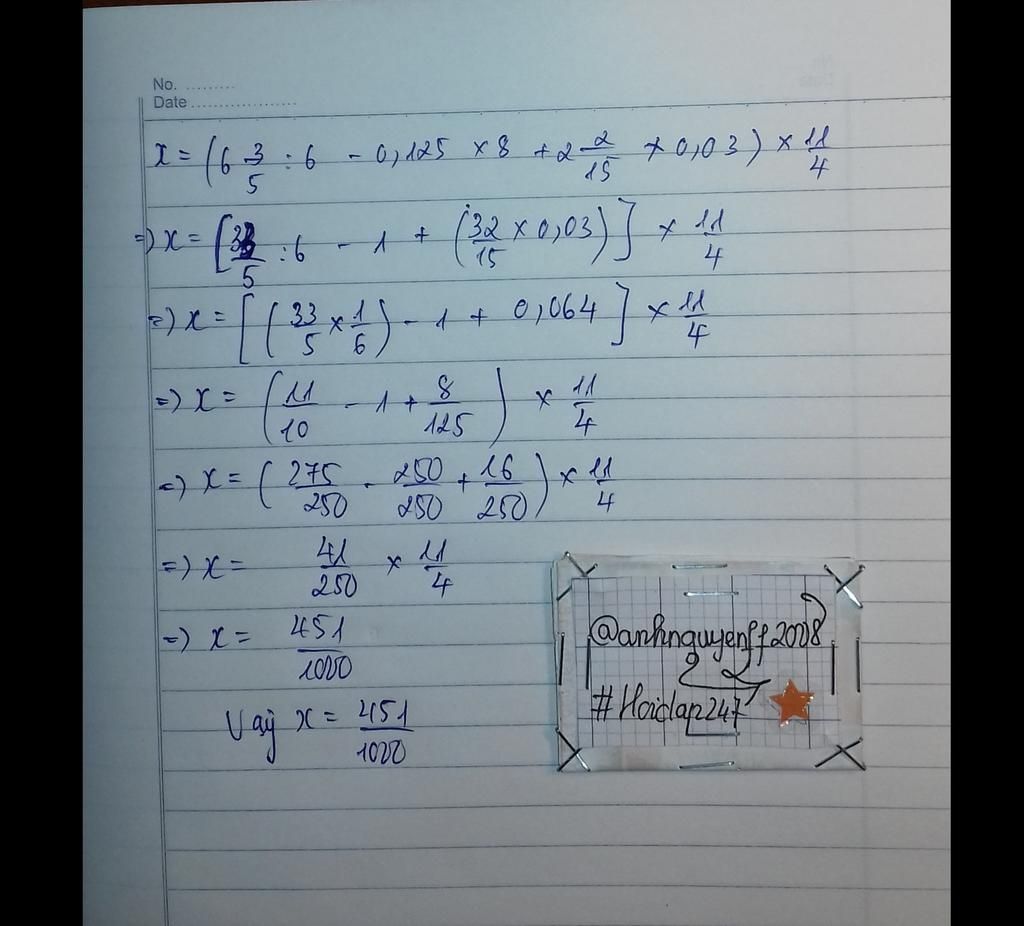 No. .........
Date ...................
x = (6 3/5 : 6 - 0,125 × 8 + 2 2/15 × 0,03) × 11/4
=) x = [33/5 : 6 - 1 + (32/15 × 0,03)] × 11/4
=) x = [(33/5 × 1/6) - 1 + 0,064] × 11/4
=) x = (11/10 - 1 + 8/125) × 11/4
=) x = (275/250 - 250/250 + 16/250) × 11/4
=) x = 41/250 × 11/4
=) x = 451/1000
Vậy x = 451/1000
@anhnguyenff2008
#Hoidap247